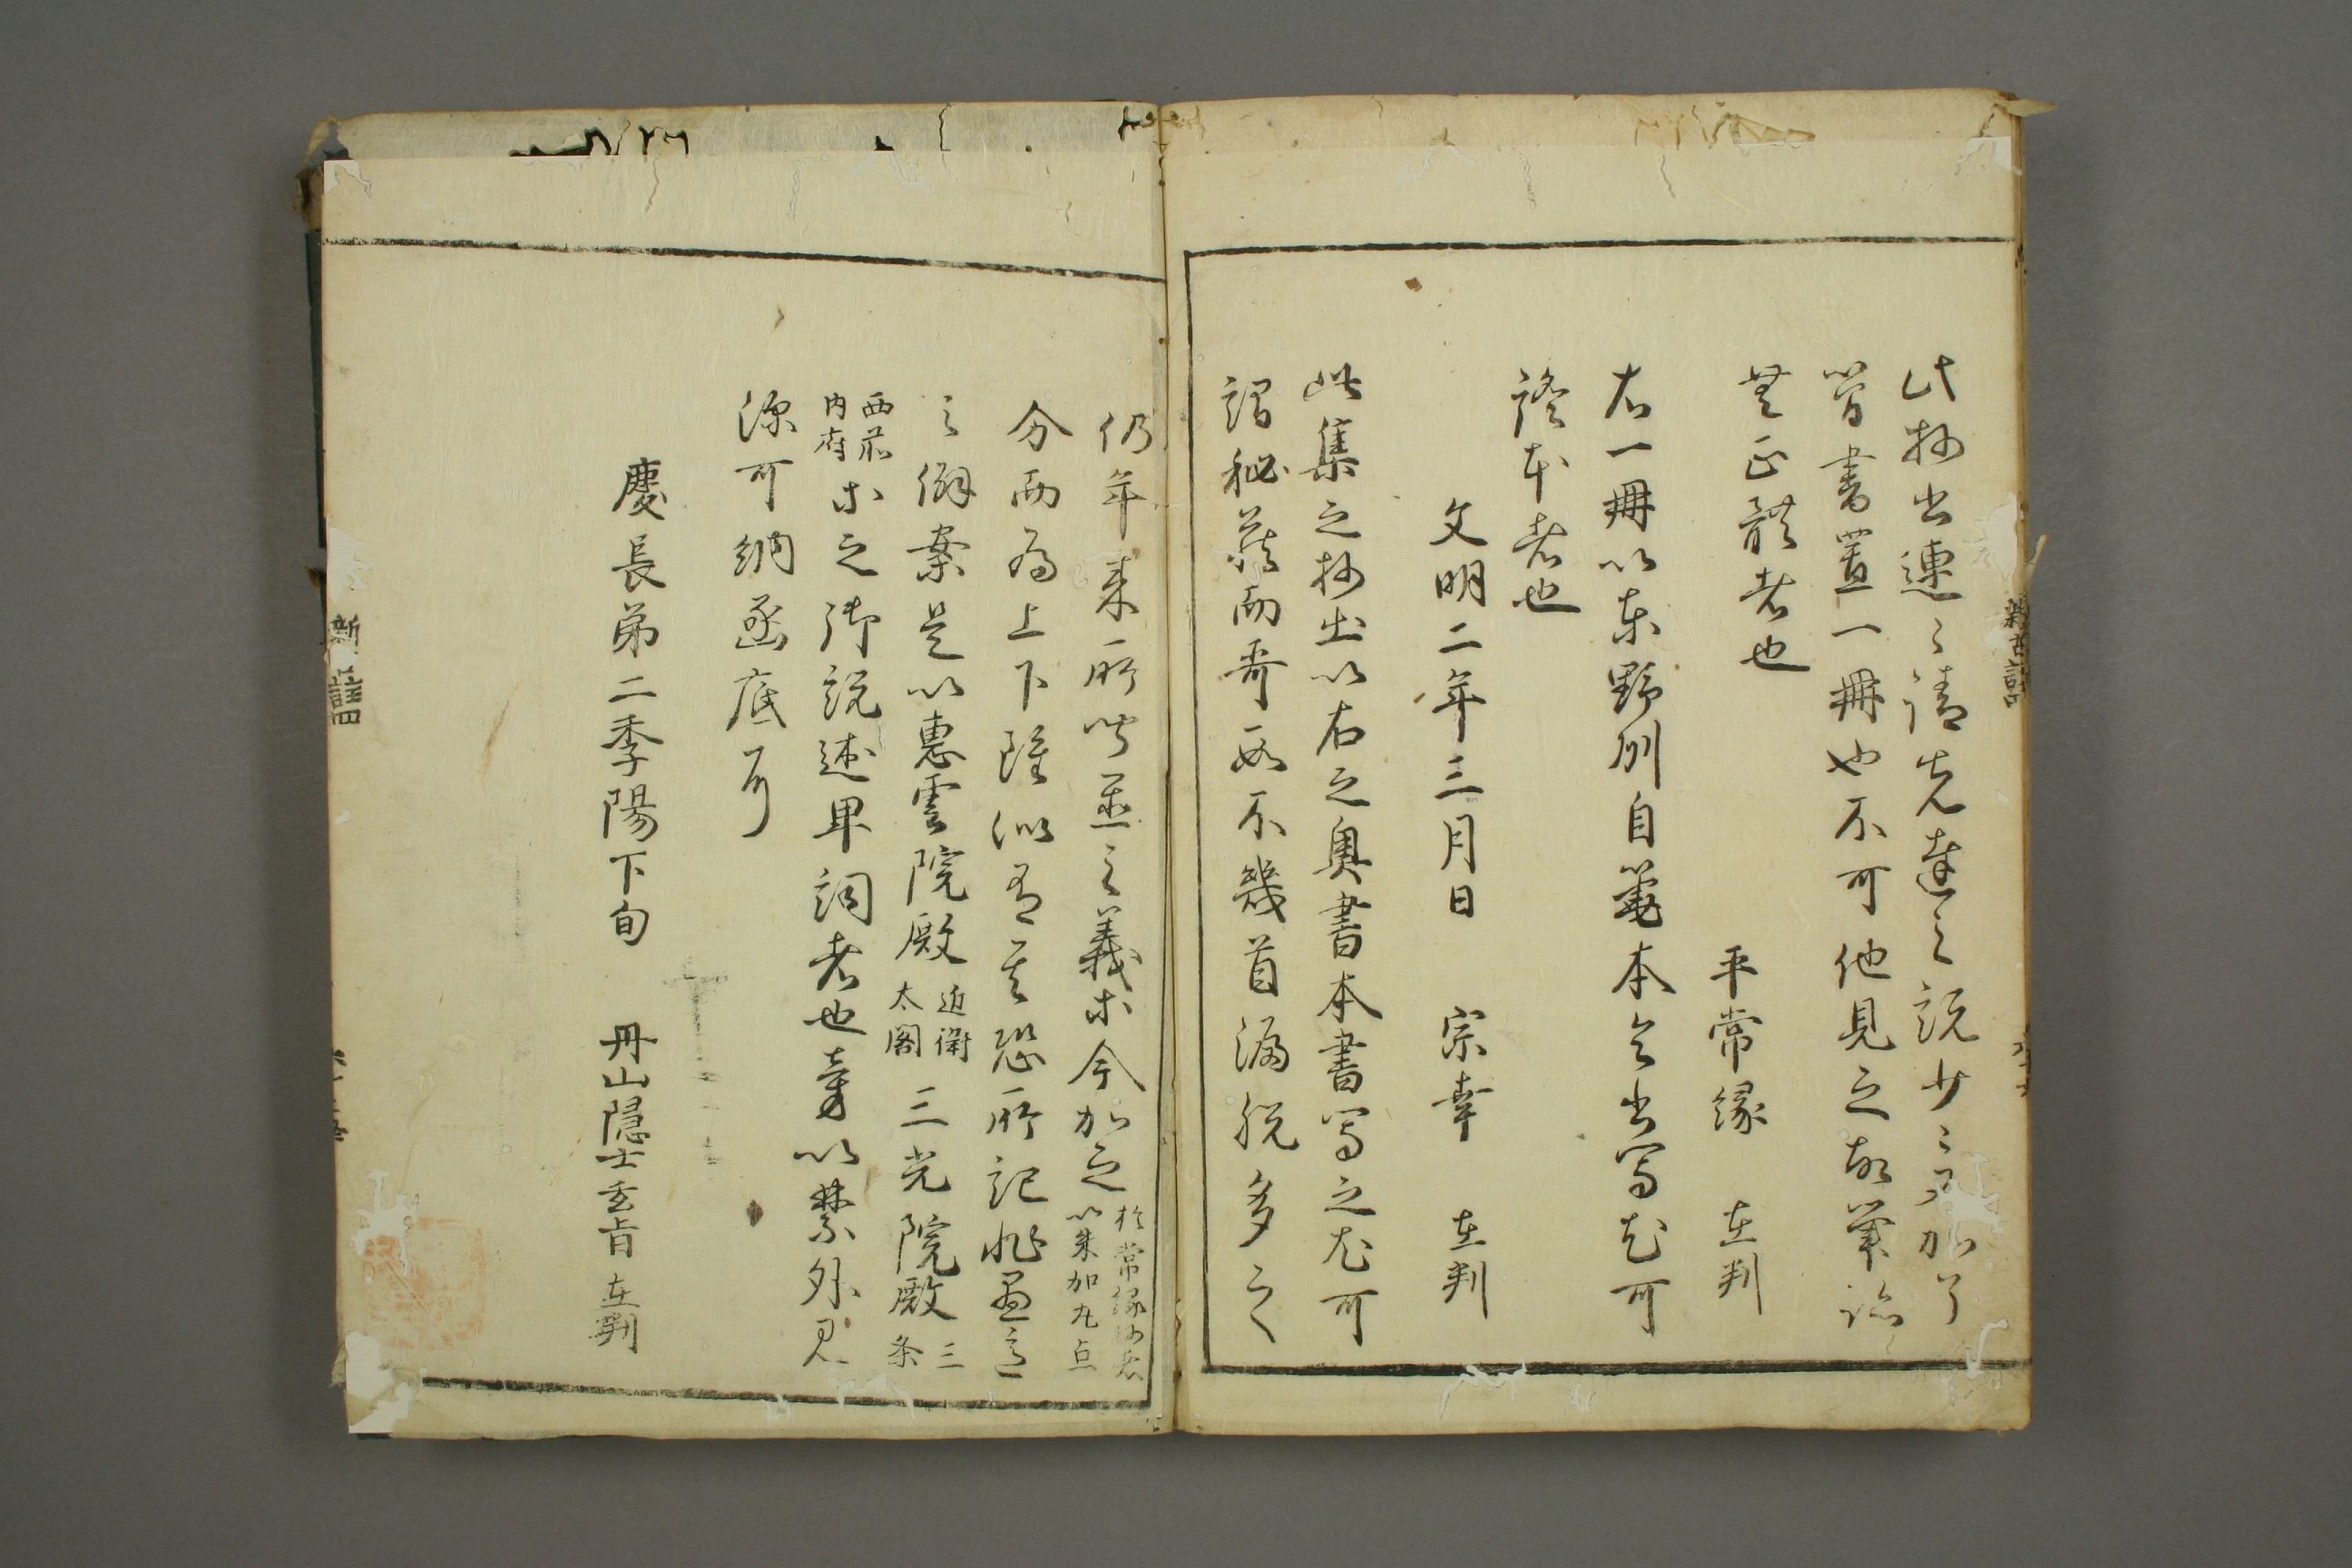 此抄出連〻請先達之説少〻加了
書置一冊也不可他見之故筆跡
無正體者也
平常縁 在判
右一冊以東野州自筆本令書写尤可
證本者也
文明二年三月日 宗幸 在判
此集之抄出以右之奥書本書写之尤可
謂秘蔵而哥数不幾首漏脱多之
仍年来所之義ホ今加之 於常縁抄者
以朱加丸点
分而為上下雖似有其恐所記非愚意
之僻案是以惠雲院殿 近衛
太閤 三光院殿 三
条
西前
内府 ホ之御説述卑詞者也章以禁外見
深可納函底耳
慶長第二季陽下旬 丹山隠士玄旨 在判